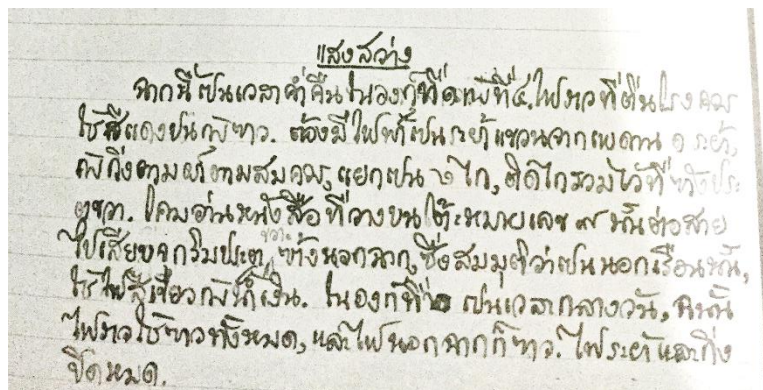 แสงสว่าง
ฉากนี้เป็นเวลาค่ำคืนในองก์ที่ ๑ และที่ ๔. ไฟราวที่ตีนโรงควร
ใช้สีแดงปนกับขาว. ต้องมีไฟฟ้าเป็นระย้าแขวนจากเพดาน ๑ ระย้า,
กับกิ่งตามฝาตามสมควร, แยกเป็น ๒ ไก, ติดไกรวมไว้ที่ข้างประ
ตูขวา. โคมอ่านหนังสือที่วางบนโต๊ะหมายเลข ๙ นั้นต่อสาย
ไปเสียบจากริมประตูขวาข้างนอกฉาก, ซึ่งสมมุติว่าเป็นนอกเรือนนั้น,
ใช้ไฟสีเขียวกับน้ำเงิน. ในองก์ที่ ๒ เป็นเวลากลางวัน, ฉะนั้น
ไฟราวใช้ขาวทั้งหมด, และไฟนอกฉากก็ขาว. ไฟระย้าและกิ่ง
ปิดหมด.